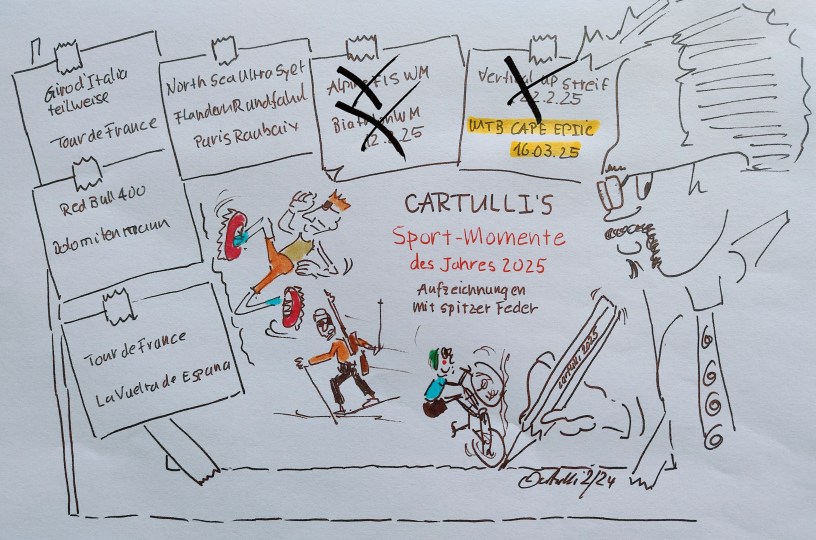 Giro d'Italia
teilweise
Tour de France
North Sea Ultra Sylt
FlandernRundfahrt
Paris Roubaix
Alpine FIS WM
BiathlonWM
12.2.25
Vertical up Streif
22.2.25
MTB CAPE EPIC
16.03.25
Red Bull 400
Dolomitenmann
Tour de France
La Vuelta de Espana
CARTULLI'S
Sport-Momente
des Jahres 2025
Aufzeichnungen
mit spitzer Feder
cartulli 2025
Cartulli 2/24